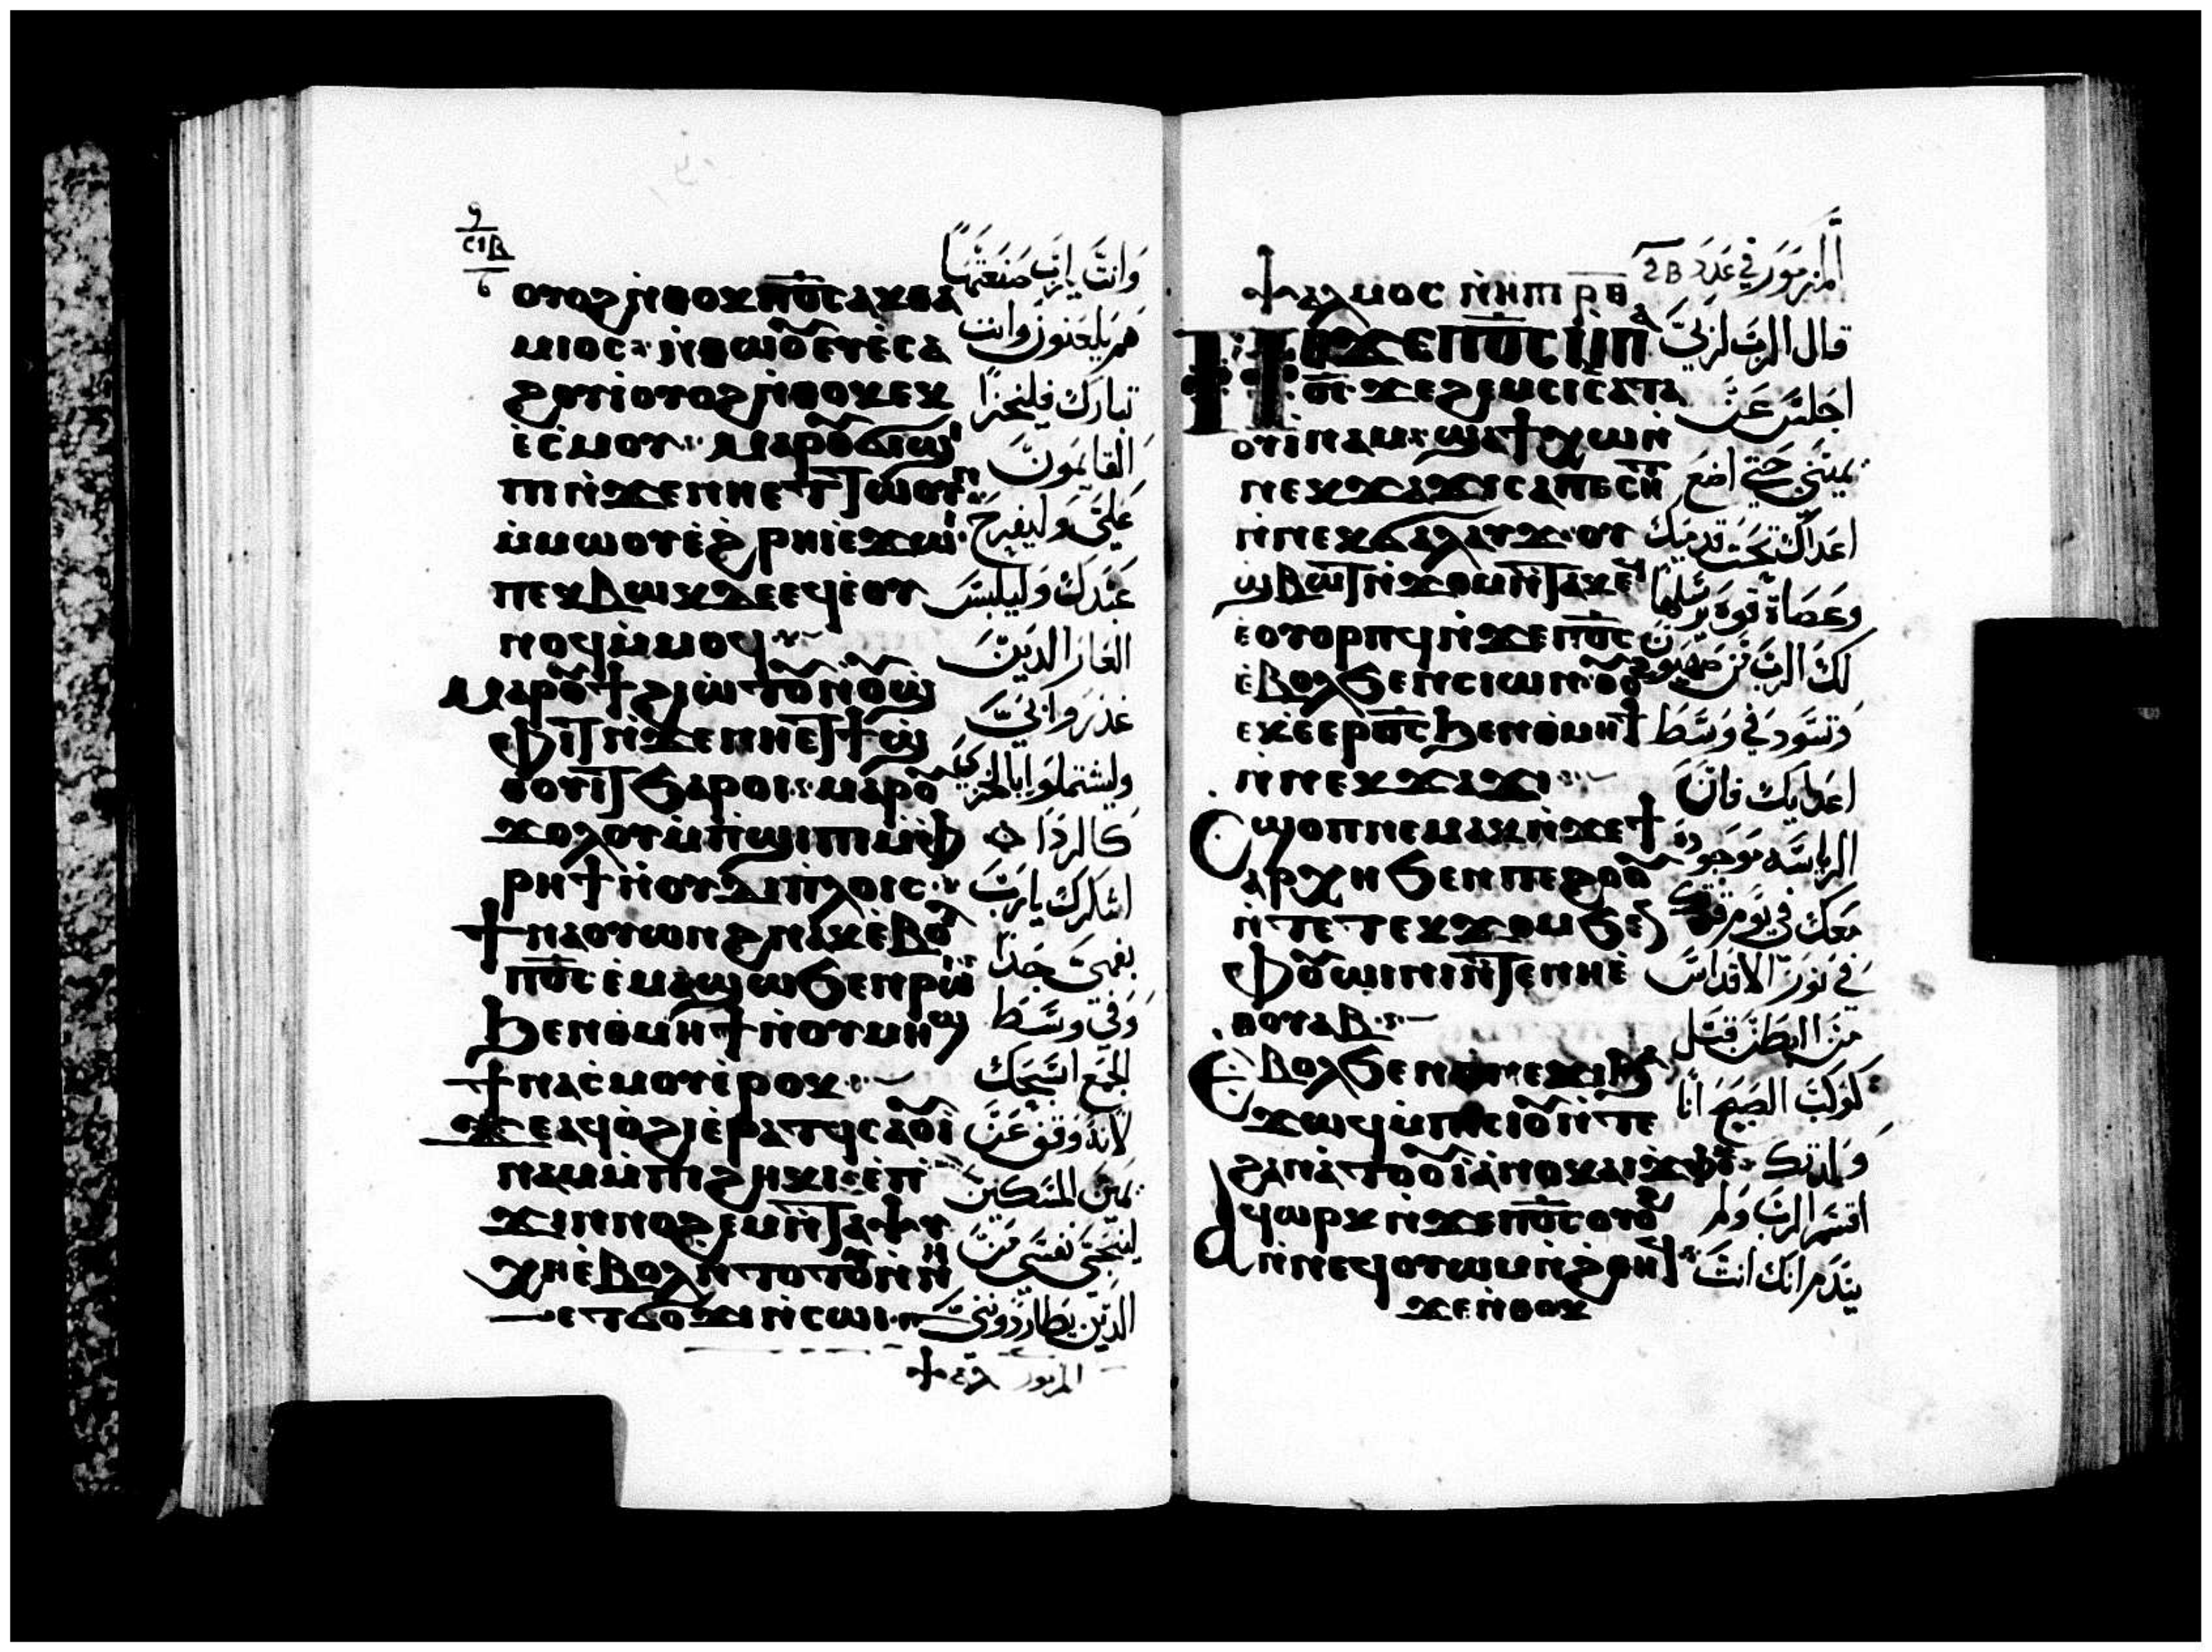 ⲟⲩⲟϩ ⲛ̇ⲑⲟⲕ ⲡⲟ̅ⲥ̅ ⲁⲕⲑⲁ
ⲙⲓⲟⲥ ⲛ̇ⲑⲱⲟⲩ ⲉⲩⲉ̇ⲥⲁ
ϩⲟⲩⲓ̇ ⲟⲩⲟϩ ⲛ̇ⲑⲟⲕ ⲉⲕ
ⲉ̇ⲥ̇ⲙⲟⲩ ⲙⲁⲣⲟⲩϭⲓϣⲓ
ⲡⲓ ⲛ̇ϫⲉ ⲛⲏⲉⲧⲧⲱⲟⲩⲛ
ⲙ̇ⲙⲱⲟⲩ ⲉ̇ϩⲣⲏⲓ ⲉϫⲱⲓ
ⲡⲉⲕⲃⲱⲕ ⲇⲉ ⲉϥⲉ̇ⲟⲩ
ⲛⲟϥ ⲙ̇ⲙⲟϥ
ⲙⲁⲣⲟⲩϯ ϩⲓⲱⲧⲟⲩ ⲛⲟⲩϣ
ⲫⲓⲧ ⲛ̇ϫⲉ ⲛⲏⲉⲧϯϣ
ⲑⲟⲩⲓⲧ ϧⲁⲣⲟⲓ ⲙⲁⲣⲟⲩ
ϫⲟⲗⲟⲩ ⲙ̇ⲡ̇ϣⲓⲡⲓ ⲙ̇ⲫ
ⲣⲏϯ ⲛ̇ⲟⲩⲇⲓⲡⲗⲟⲓⲥ
ϯⲛⲁⲟⲩⲱⲛϩ ⲛⲁⲕ ⲉ̇ⲃⲟⲗ
ⲡⲟ̅ⲥ̅ ⲉ̇ⲙⲁϣⲱ ϧⲉⲛ ⲣⲱⲓ
ϧⲉⲛ ⲑⲙⲏϯ ⲛ̇ⲟⲩⲙⲏϣ
ϯⲛⲁⲥ̇ⲙⲟⲩ ⲉ̇ⲣⲟⲕ
ϫⲉ ⲁϥⲟ̇ϩⲓ ⲉ̇ⲣⲁⲧϥ ⲥⲁⲟⲩⲓ̇
ⲛⲁⲙ ⲙ̇ⲡⲓϩⲏⲕⲓ ⲉ̇ⲡ
ϫⲓⲛⲛⲟϩⲉⲙ ⲛ̇ⲧⲁⲯⲩ
ⲭⲏ ⲉ̇ⲃⲟⲗ ⲛ̇ⲧⲟⲧⲟⲩ ⲛ̇ⲛⲏ
ⲉⲧϭⲟϫⲓ ⲛ̇ⲥⲱⲓ
وانت يارب صنعتها
هم يلعنون وانت
تبارك فليخزا
القايمون
علي وليفرح
عبدك وليلبس
العار الدين
غدروا بي
وليشتملوا بالخزي
كالردا
اشكرك يارب
بفمي جدا
وفي وسط
الجمع اسبحك
لانه وقف عن
يمين المسكين
لينجي نفسي من
الدين يطاردونني
المزمور
ⲯⲁⲗⲙⲟⲥ ⲛ̇ⲏⲡⲓ ⲣⲑ
ⲡⲉϫⲉ ⲡⲟ̅ⲥ̅ ⲙ̇ⲡⲁ
ⲟ̅ⲥ̅ ϫⲉ ϩⲉⲙⲥⲓ ⲥⲁⲧⲁ
ⲟⲩⲓ̇ⲛⲁⲙ ϣⲁϯⲭⲱ ⲛ̇
ⲛⲉⲕϫⲁϫⲓ ⲥⲁⲡⲉⲥⲏⲧ
ⲛ̇ⲛⲉⲕϭⲁⲗⲁⲩϫ ⲟⲩ
ϣⲃⲱⲧ ⲛ̇ϫⲟⲙ ⲛ̇ⲧⲁⲕ ⲉϥ
ⲉ̇ⲟⲩⲟⲣⲡϥ ⲛ̇ϫⲉ ⲡⲟ̅ⲥ̅
ⲉ̇ⲃⲟⲗ ϧⲉⲛ ⲥⲓⲱⲛ ⲟⲩⲟϩ
ⲉⲕⲉ̇ⲉⲣⲟ̅ⲥ̅ ϧⲉⲛ ⲑⲙⲏϯ
ⲛ̇ⲛⲉⲕϫⲁϫⲓ
ⲥϣⲟⲡ ⲛⲉⲙⲁⲕ ⲛ̇ϫⲉ ϯ
ⲁⲣⲭⲏ ϧⲉⲛ ⲡⲉϩⲟⲟⲩ
ⲛ̇ⲧⲉ ⲧⲉⲕϫⲟⲙ ϧⲉⲛ
ⲫⲟⲩⲱⲓⲛⲓ ⲛ̇ⲧⲉ ⲛⲏⲉ
ⲑⲟⲩⲁⲃ
ⲉ̇ⲃⲟⲗ ϧⲉⲛ ⲑⲛⲉϫⲓ ϧⲁ
ϫⲱϥ ⲙ̇ⲡⲓⲥⲓⲟⲩ ⲛ̇ⲧⲉ
ϩⲁⲛⲁ̇ⲧⲟⲟⲩⲓ̇ ⲁ̇ⲛⲟⲕ ⲁⲓϫⲫⲟⲕ
ⲁϥⲱⲣⲕ ⲛ̇ϫⲉ ⲡⲟ̅ⲥ̅ ⲟⲩⲟϩ
ⲛ̇ⲛⲉϥⲟⲩⲱⲙ ⲛ̇ϩⲑⲏϥ
ϫⲉ ⲛ̇ⲑⲟⲕ
المزمور في عدد
قال الرب لربي
اجلس عن
يميني حتي اضع
اعداك تحت قدميك
وعصاة قوة يرسلها
لك الرب من صهيون
وتسود في وسط
اعدايك فان
الرياسه موجودة
معك في يوم قوتك
في نور الاقداس
من البطن قبل
كوكب الصبح انا
ولدتك
اقسم الرب ولم
يندم انك انت